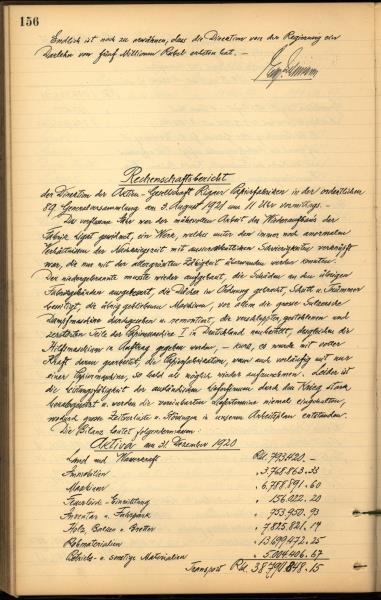 156
Endlich ist noch zu erwähnen, dass die Direktion von der Regierung ein
Darlehn von fünf Millionen Rubel erbeten hat. —
Rechenschaftsbericht
der Direktion der Aktien-Gesellschaft Rigaer Papierfabriken in der ordentlichen
89. Generalversammlung am 3. August 1921 um 11 Uhr vormittags. —
Das verflossene Jahr war der mühevollen Arbeit des Wiederaufbaus der
Fabrik Ligat gewidmet, ein Werk, welches unter den immer noch anormalen
Verhältnissen der mit ausserordentlichen Schwierigkeiten verknüpft
war, die nur mit der allergrössten Zähigkeit überwunden werden konnten.
Das niedergebrannte musste wieder aufgebaut, die Schäden an den übrigen
Fabrikgebäuden ausgebessert, die Dächer in Ordnung gebracht, Schutt u. Trümmer
beseitigt, die übrig gebliebenen Maschinen, vor allem die grosse
Dampfmaschine durchgesehen u. remontiert, die verschleppten, gestohlenen und
zerstörten Teile der Papiermaschine I in Deutschland neubestellt, desgleichen die
Hilfsmaschinen in Auftrag gegeben werden, — kurz, es wurde mit voller
Kraft daran gearbeitet, die Papierfabrikation, wenn auch vorläufig mit nur
einer Papiermaschine, so bald als möglich wieder aufzunehmen. Leider ist
die Leistungsfähigkeit der ausländischen Lieferfirmen durch den Krieg stark
herabgesetzt u. werden die vereinbarten Liefertermine niemals eingehalten,
wodurch grosse Zeitverluste u. Störungen in unserem Arbeitsplan entstanden.
Die Bilanz lautet folgendermassen:
Aktiva am 31. Dezember 1920
Land und Wasserkraft Rbl. 793.420. —
Immobilien " 3.768.863.33
Maschinen " 6.788.891.60
Feuerlösch-Einrichtung " 156.022.20
Inventar u. Fuhrpark " 753.950.93
Holz, Balken u. Bretter " 7.825.821.14
Rohmaterialien " 13.699.472.25
Betriebs- u. sonstige Materialien " 5.004.406.67
Transport Rbl. 38.790.848.15